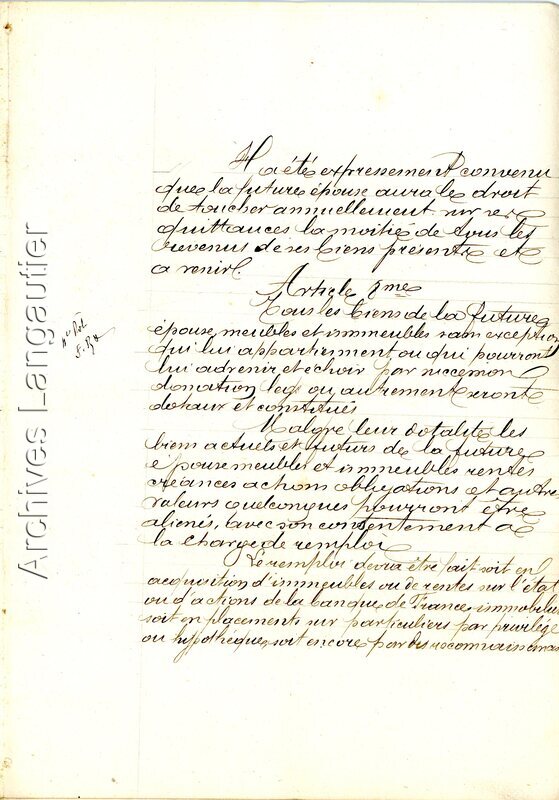 Il a été expressement convenu
que la future épouse aura le droit
de toucher annuellement sur ses
quittances la moitie de tous les
revenus de ses biens présents et
a venir.
Article 5me
Tous les biens de la future
épouse, meubles et immeubles sans exception
qui lui appartiennent ou qui pourront
lui advenir et échoir par succession
donation legs ou autrement seront
dotaux et constitués
Malgré leur dotalité les
biens actuels et futurs de la future
épouse meubles et immeubles rentes
créances actions obligations et autre
valeurs quelconques pourront être
aliénés, avec son consentement a
la charge de remploi
Le remploi devra être fait soit en
acquisition d'immeubles ou de rentes sur l'état
ou d'actions de la banque de France immobilis
soit en placements sur particuliers par privilége
ou hypothèque, soit encore par des reconnaissances
Archives Langautier